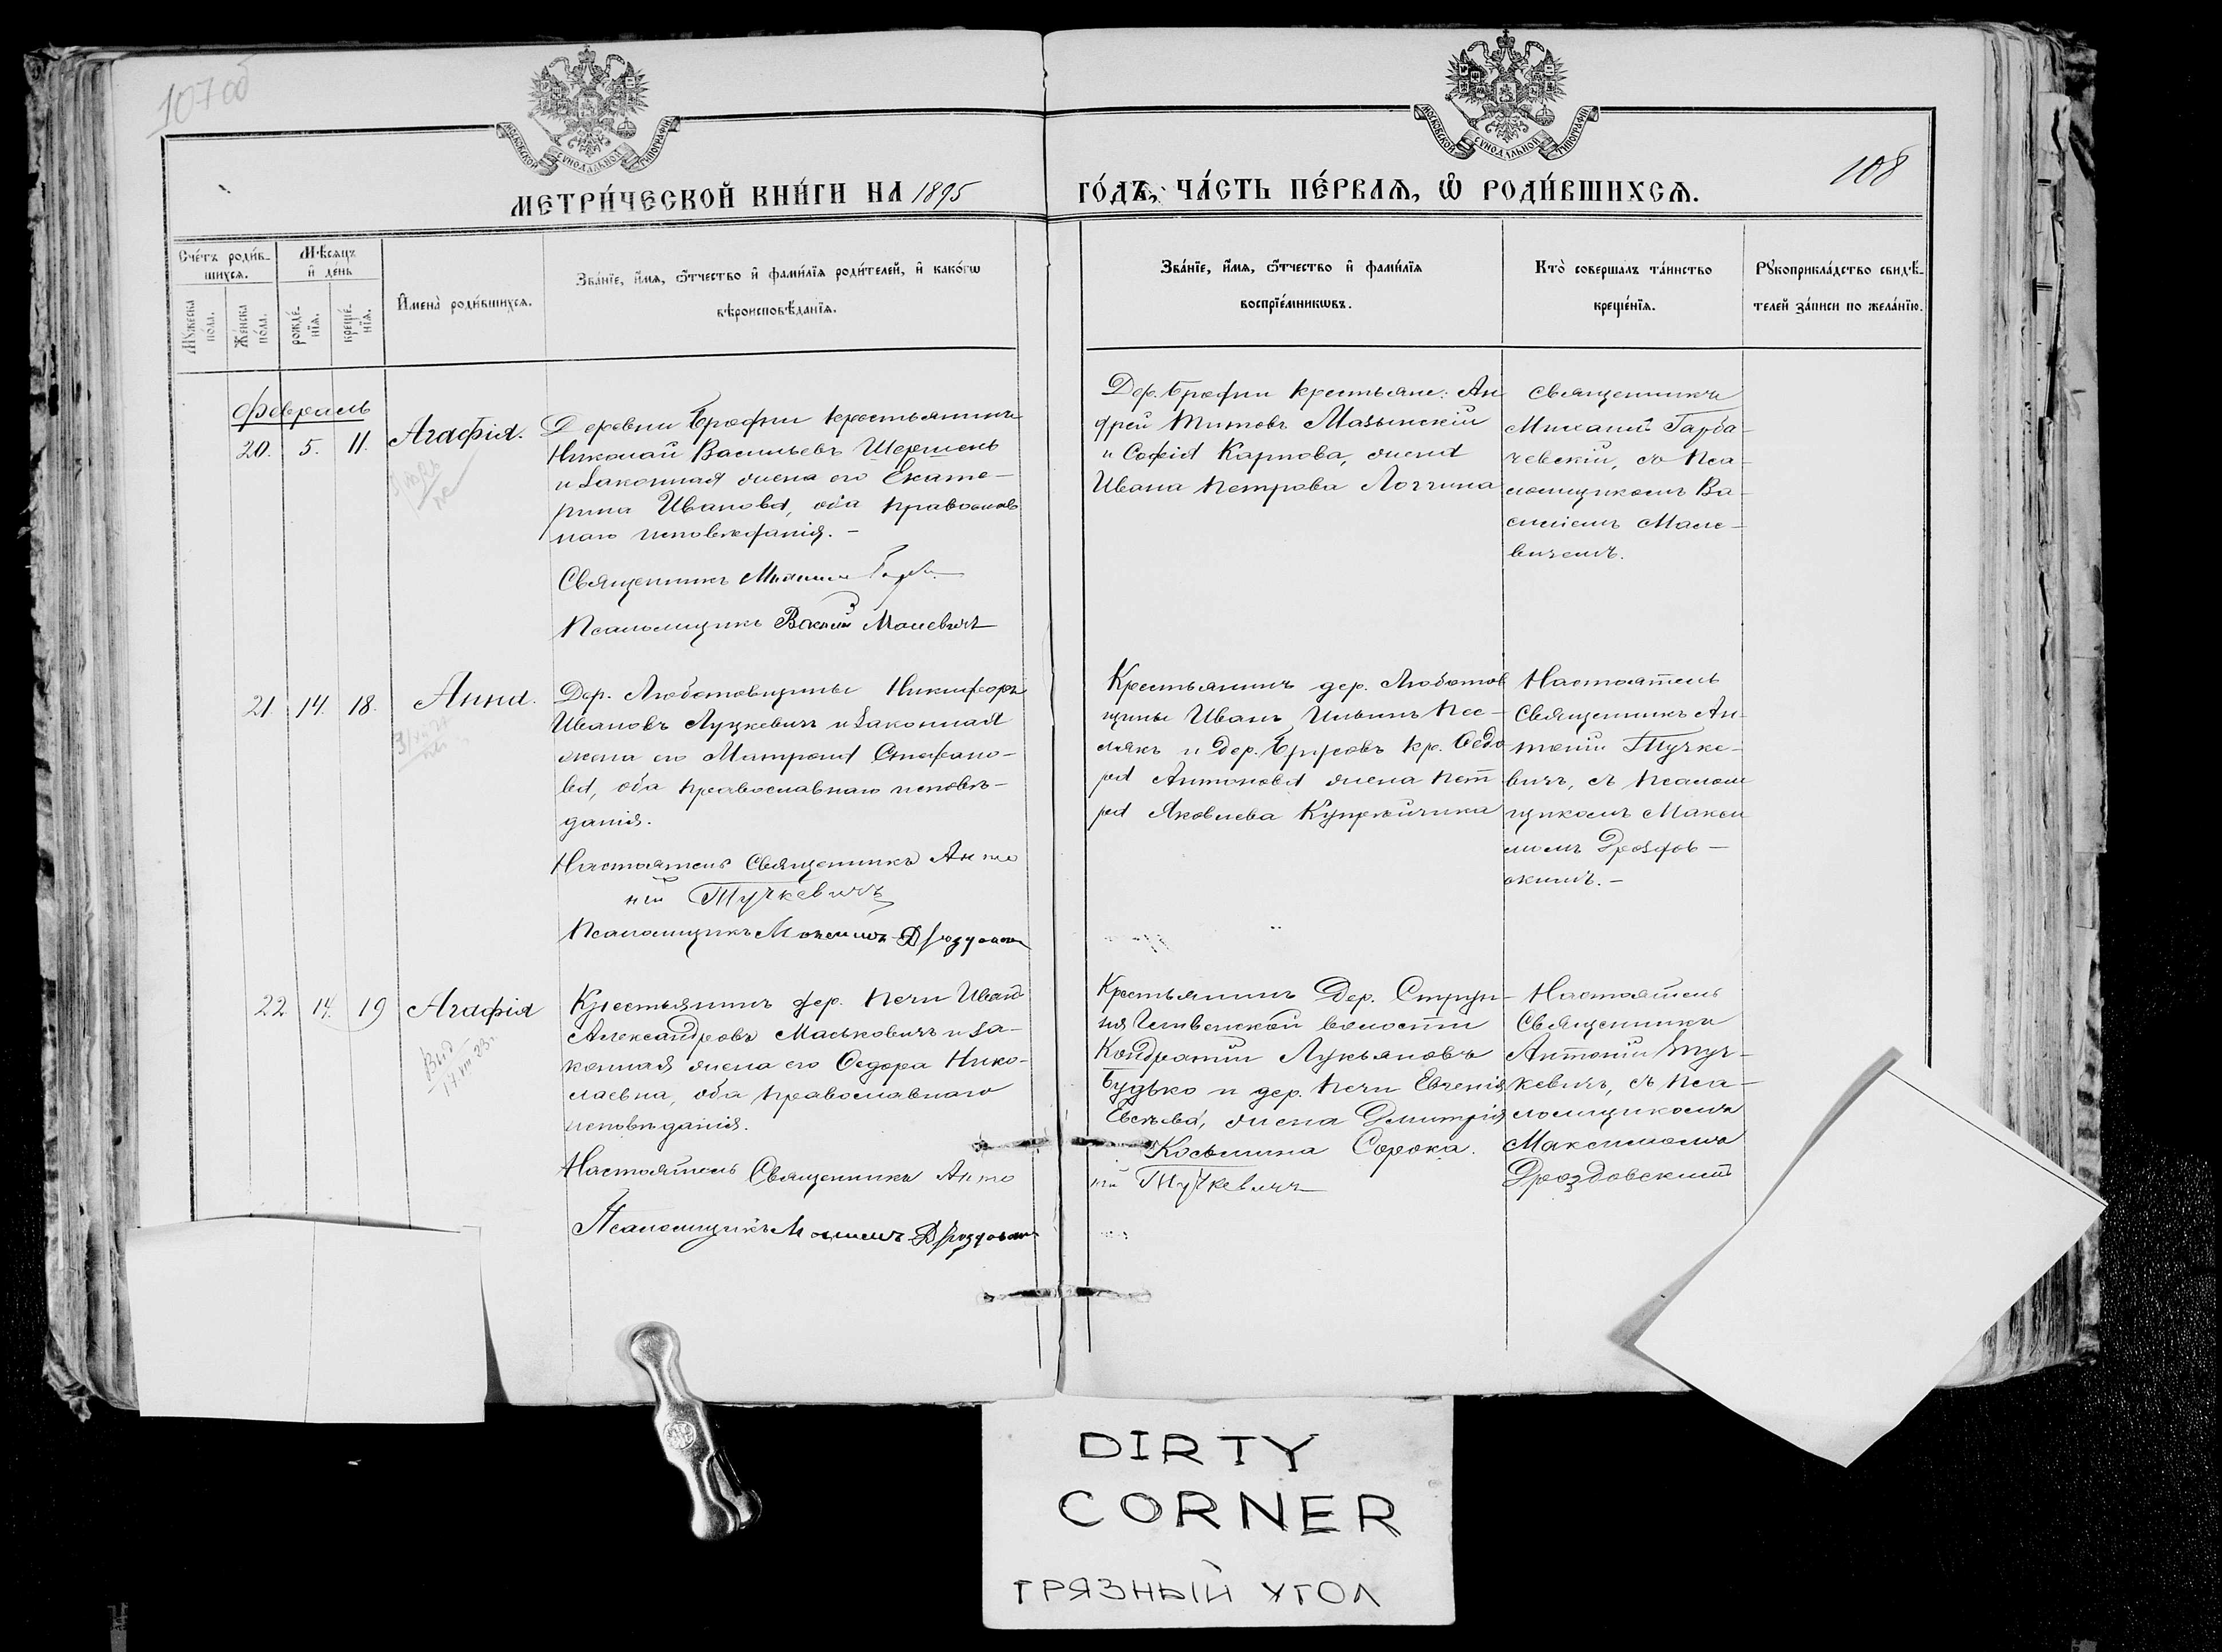 107 об
108
МОСКОВСКОЙ СѴНОДАЛЬНОЙ ТИПОГРАФІИ
МОСКОВСКОЙ СѴНОДАЛЬНОЙ ТИПОГРАФІИ
МЕТРИ́ЧЕСКОЙ КНИ́ГИ НА 1895
ГО́ДЪ, ЧА́СТЬ ПЕ́РВАѦ, Ѡ҆ РОДИ́ВШИХСѦ.
Сче́тъ роди́в-
шихсѧ.
Мꙋ́жеска по́ла.
Же́нска по́ла.
Мѣ́сѧцъ
и҆ день
рожде́-
нїѧ.
креще́-
нїѧ.
И҆мена̀ роди́вшихсѧ.
Зва́нїе, и҆́мѧ, ѻ҆́тчество и҆ фами́лїѧ роди́телей, и҆ како́гѡ
вѣроисповѣ́данїѧ.
Зва́нїе, и҆́мѧ, ѻ҆́тчество и҆ фами́лїѧ
воспрїе́мникѡвъ.
Кто̀ соверша́лъ та́инство
креще́нїѧ.
Рꙋкоприкла́дство свидѣ́-
телей за́писи по жела́нїю.
Февраль
20. 5. 11. Агафія.
Деревни Ерофни крестьянинъ
Николай Васильевъ Шершень
и законная жена его Екате-
рина Иванова, оба православ
наго исповѣданія. -
Священникъ Михаил
Псаломщикъ Василій Малевичъ
Дер. Ерофни крестьяне: Ан
дрей Титовъ Мазынскій
и Софія Карпова, жена
Ивана Петрова Логгина
Священникъ
Михаилъ Гарба-
чевскій, съ Пса-
ломщикомъ Ва-
силіемъ Мале-
вичемъ.
21. 14. 18. Анна.
Дер. Любатовщины Никифоръ
Ивановъ Луцкевич и законная
жена его Матрона Стефано-
ва, оба православнаго исповѣ-
данія.
Настоятель Священникъ Анто
ній Тучкевичъ
Псаломщикъ Максимъ Дроздовскій
Крестьянинъ дер. Любатов
щины Иванъ Ильинъ Пес-
лякъ и Дер. кр. Ѳедо
ра Антонова жена Пет
ра Яковлева Купрейчика
Настоятель
Священникъ Ан-
тоній Тучке-
вичъ, съ Псалом
щикомъ Макси
момъ Дроздов-
скимъ. -
22 14. 19 Агафія
Выд
17. VIII 23 г.
Крестьянинъ дер. Печи Иванъ
Александровъ Маськовичъ и за-
конная жена его Ѳедора Нико-
лаевна, оба православнаго
исповѣданія.
Настоятель Священникъ Анто
ній Тучкевичъ
Псаломщикъ Максимъ Дроздовскій
Крестьянинъ Дер. Струп-
ня волости
Кондратій Лукьяновъ
Будько и дер. Печи Евгенія
Евсѣева, жена Дмитрія
Косьмина Сорока.
Настоятель
Священникъ
Антоній Туч-
кевичъ, съ Пса-
ломщикомъ
Максимомъ
Дроздовскимъ
DIRTY
CORNER
ГРЯЗНЫЙ УГОЛ